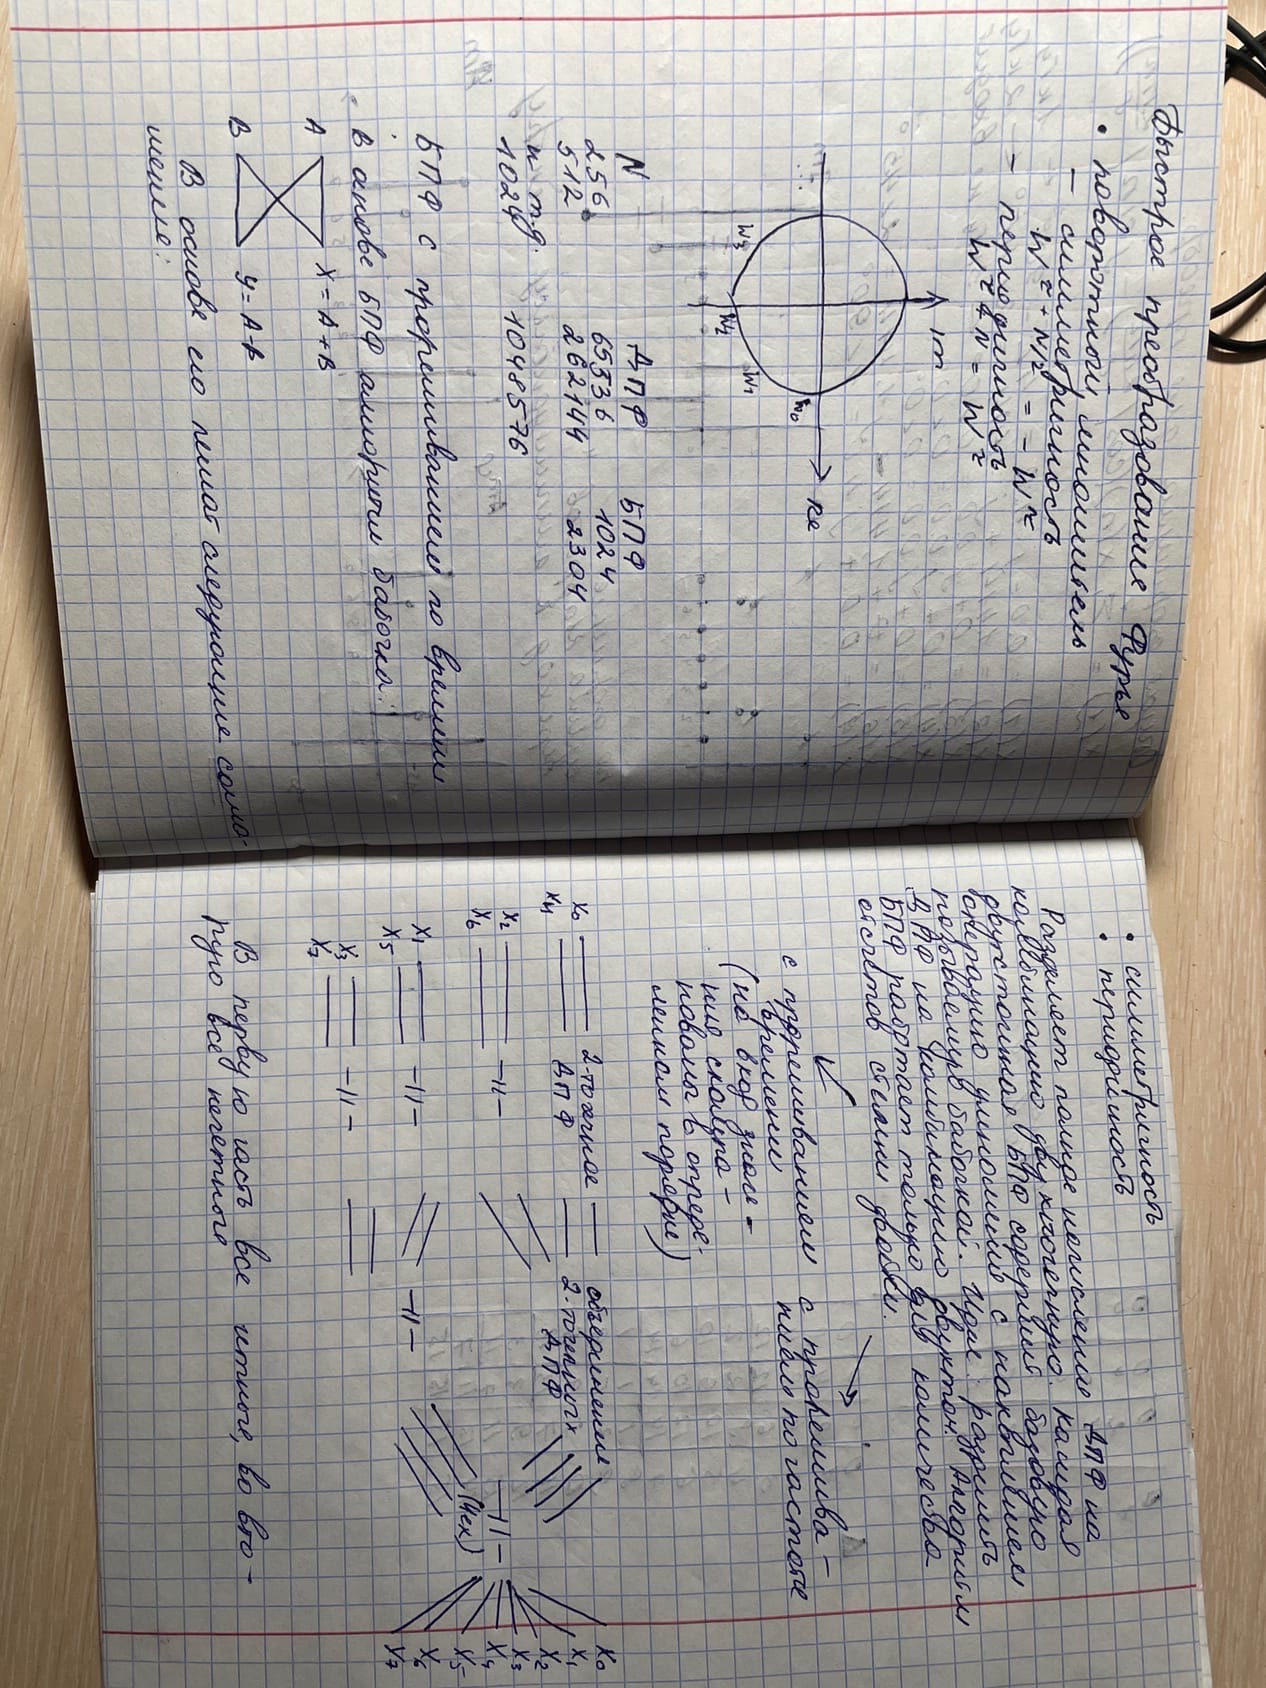 Быстрое преобразование Фурье
• поворотный множитель
– симметричность
W^(r + N/2) = - W^r
– периодичность
W^(r + N) = W^r
Im
Re
W0
W1
W2
W3
N ДПФ БПФ
256 65536 1024
512 262144 2304
и т.д.
1024 1048576
БПФ с прореживанием по времени
В основе БПФ алгоритм бабочка:
A X = A + B
B Y = A - B
В основе его лежат следующие сооно-
шение:
• симметричность
• периодичность
Разделяет полное исчисление ДПФ на
комбинацию двухточечную. Каждая
двухточечная БПФ содержит базовую
операцию умножения с накоплением
называемую бабочкой. Идея: разделить
ДПФ на комбинацию двухточ. Алгоритм
БПФ работает только для количества
отсчетов степени двойки.
с прореживанием
времени
(на вход значе-
ния скомпа-
нованы в опреде-
ленном порядке)
с прорежива-
нием по частоте
X0 2-точечное объединение X0
X4 ДПФ 2-точечных X1
ДПФ X2
X2 –//– X3
X6 –//– X4
(4ех) X5
X1 –//– –//– X6
X5 X7
X3 –//–
X7
В первую часть все четные, во вто-
рую все нечетные